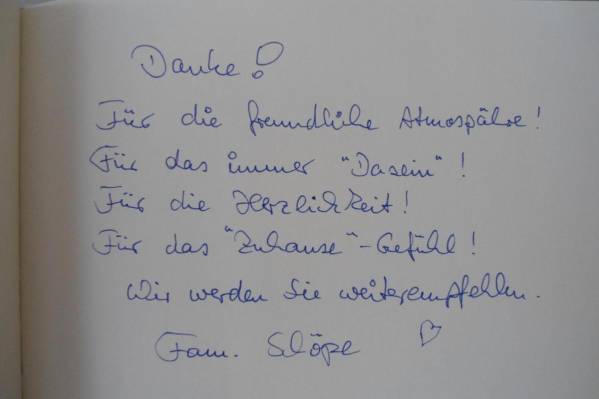 Danke!
Für die freundliche Atmospähre!
Für das immer "Dasein"!
Für die Herzlichkeit!
Für das "Zuhause"-Gefühl!
Wir werden Sie weiterempfehlen.
Fam.